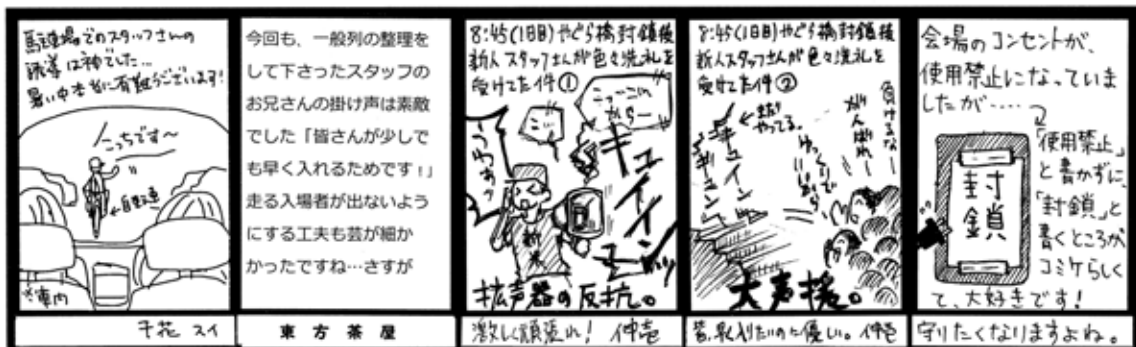 駐車場でのスタッフさんの
誘導は神でした…
暑い中本当に有難うございます!
こっちです〜
←自転車
※車内
千花 スイ
今回も、一般列の整理を
して下さったスタッフの
お兄さんの掛け声は素敵
でした「皆さんが少しで
も早く入れるためです!」
走る入場者が出ないよう
にする工夫も芸が細か
かったですね…さすが
東方茶屋
8:45(1日目)やぐら橋封鎖後
新人スタッフさんが色々洗礼を
受けてた件①
こっ…この
からー
こ…
うわぁっ
キュイイーン
新米
拡声器の反抗。
激しく頑張れ! 仲壱
8:45(1日目)やぐら橋封鎖後
新人スタッフさんが色々洗礼を
受けてた件②
負けるなー
がんばれー
ゆっくりで
いいから
←まだ
やってる。
キュイーン
大声援。
皆、早く入りたいのに優しい。仲壱
会場のコンセントが、
使用禁止になっていま
したが……
「使用禁止」
と書かずに、
「封鎖」と
書くところが
コミケらしく
て、大好きです!
封鎖
守りたくなりますよね。